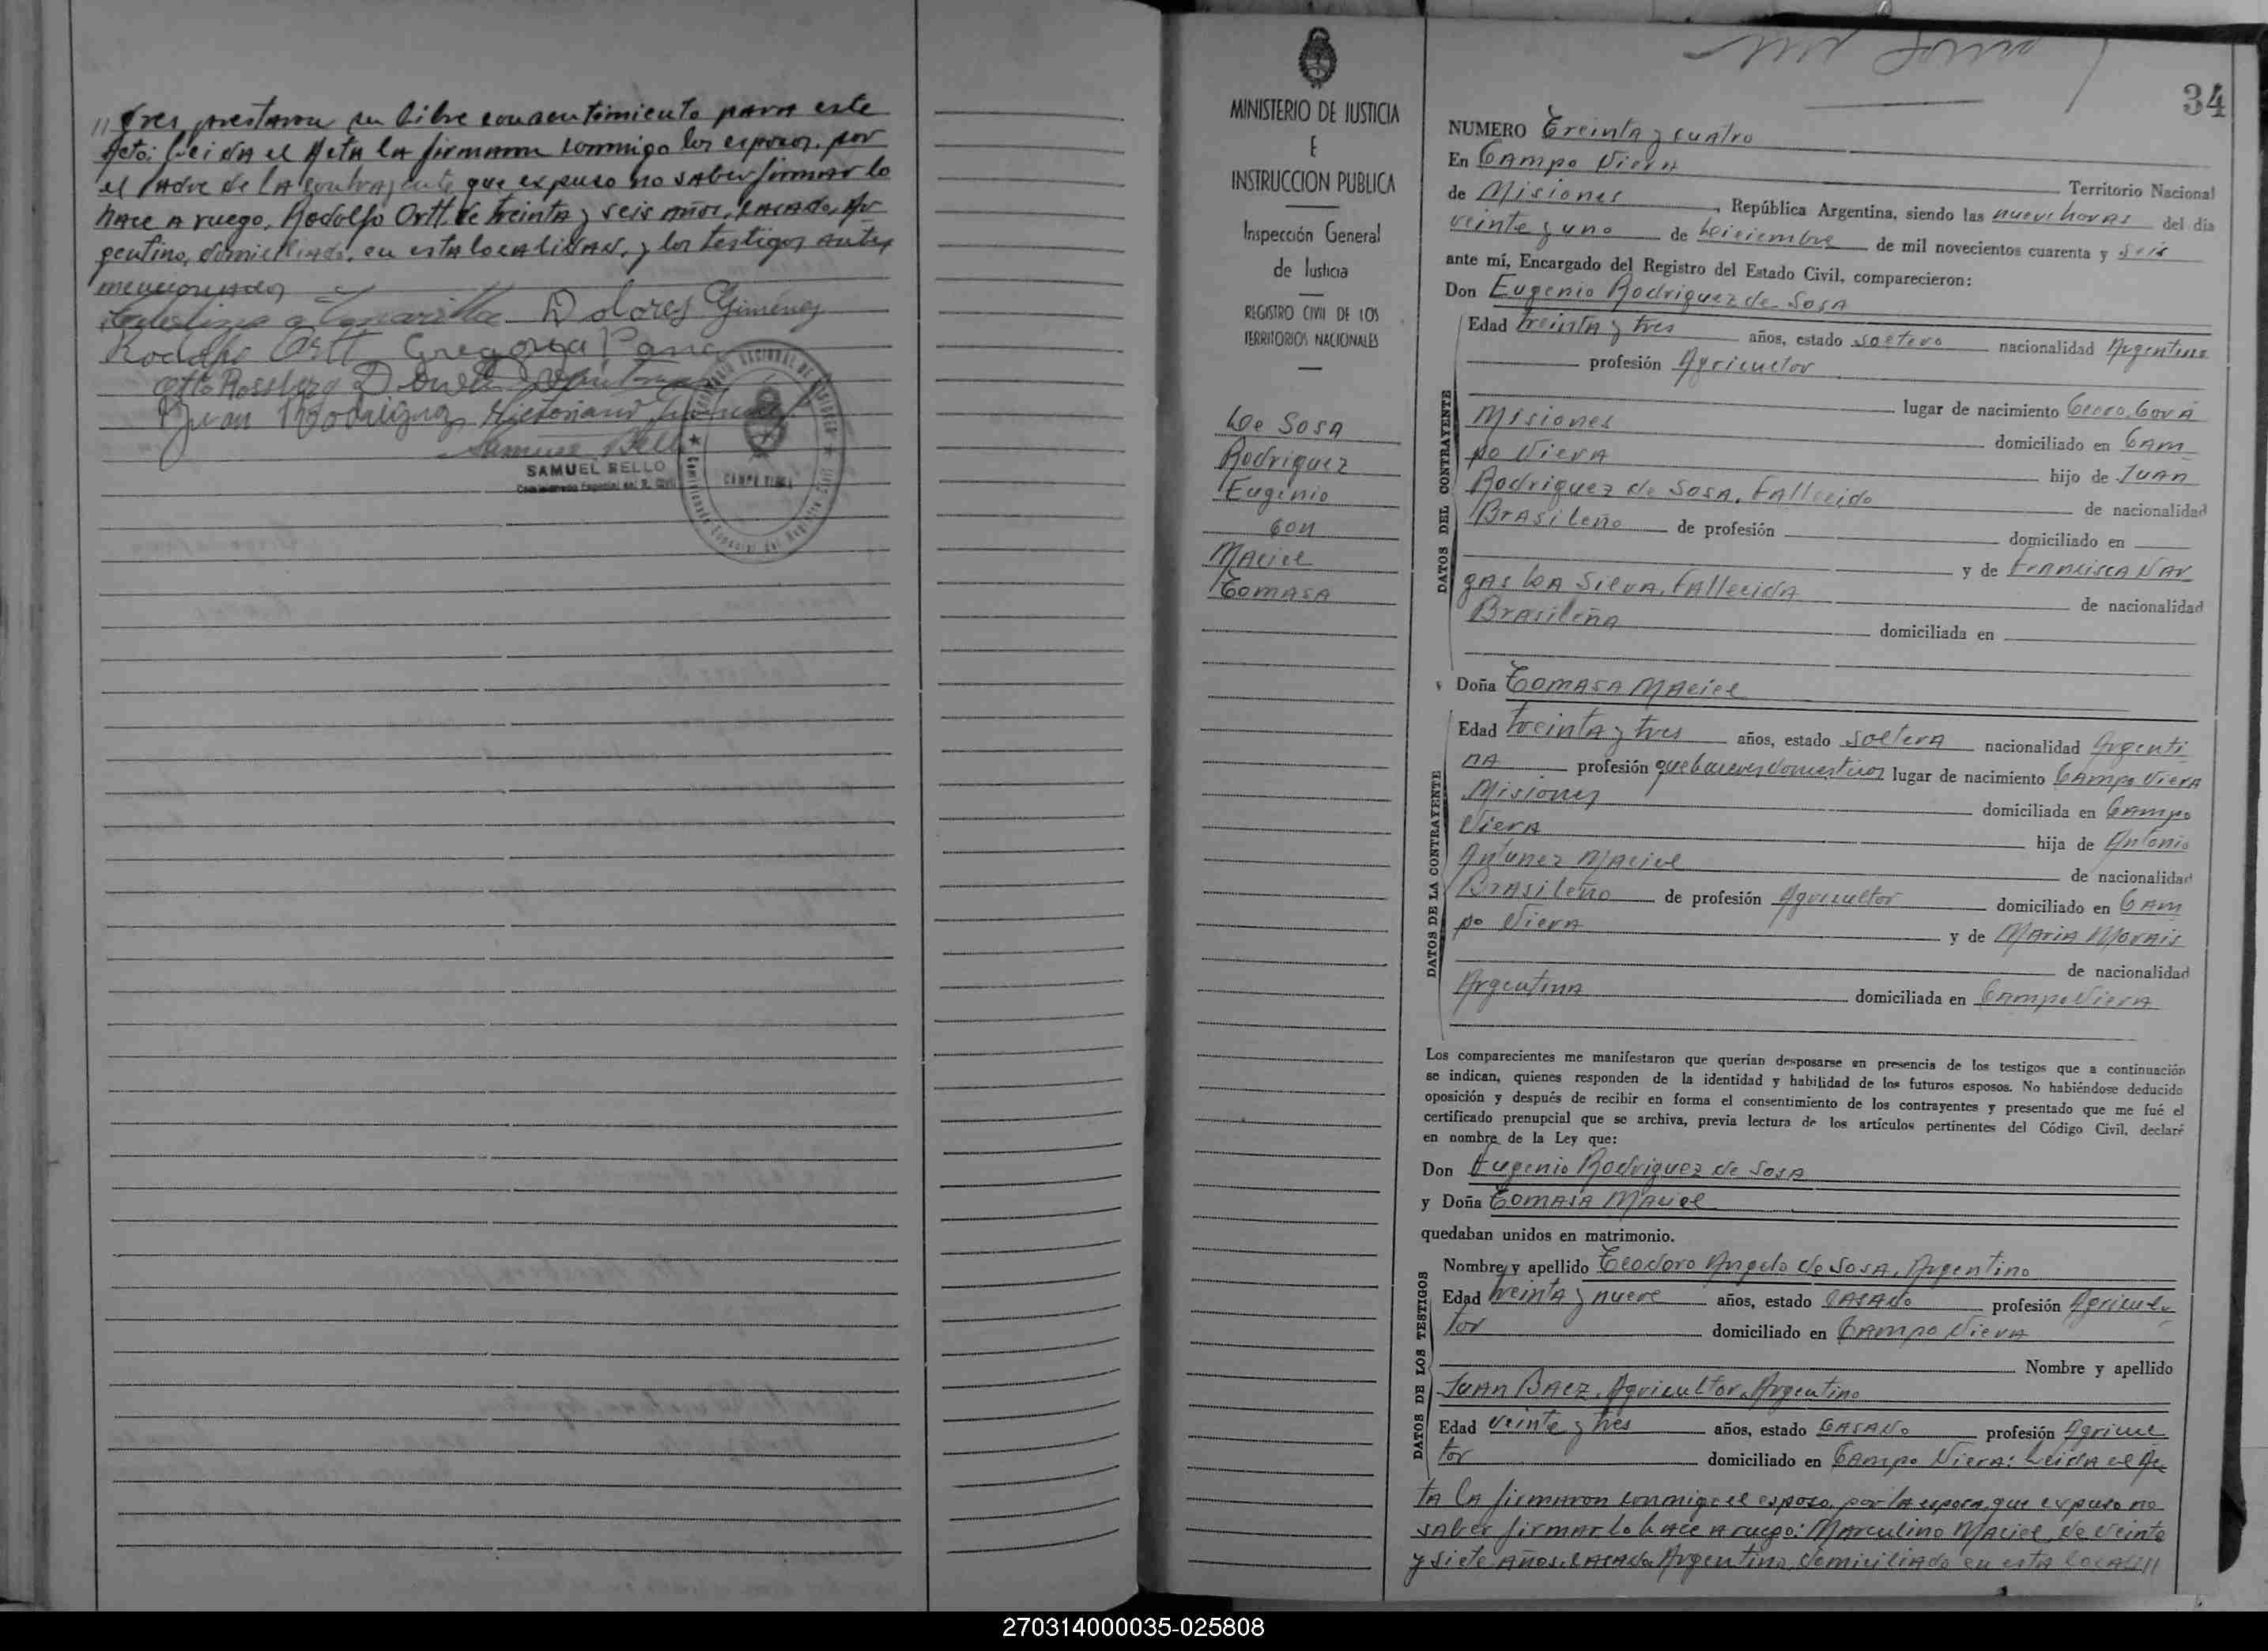 // dres prestaron su libre consentimiento para este
Acto; Leida el Acta la firmaron conmigo los esposos, por
el Padre de la contrayente que expuso no saber firmar lo
hace a ruego, Rodolfo Ortt, de treinta y seis años, casado, Ar
gentino, domiciliado, en esta localidad, y los testigos antes
mencionados
Dolores Giménez
Rodolfo Ortt Gregorya
Otto Rossberg
Juan Rodriguez Victoriano
Samuel Bello
SAMUEL BELLO
Comisionado Especial del R. Civil
CAMPO VIERA
MINISTERIO DE JUSTICIA
E
INSTRUCCION PUBLICA
Inspección General
de Justicia
REGISTRO CIVIL DE LOS
TERRITORIOS NACIONALES
De Sosa
Rodriguez
Eugenio
con
Maciel
Tomasa
34
NUMERO Treinta y cuatro
En Campo Viera Territorio Nacional
de Misiones, República Argentina, siendo las nueve horas del día
veinte y uno de Diciembre de mil novecientos cuarenta y seis
ante mí, Encargado del Registro del Estado Civil, comparecieron:
Don Eugenio Rodriguez de Sosa
DATOS DEL CONTRAYENTE
Edad treinta y tres años, estado soltero nacionalidad Argentino
profesión Agricultor
lugar de nacimiento Cerro Corá
Misiones domiciliado en Cam
po Viera hijo de Juan
Rodriguez de Sosa, Fallecido de nacionalidad
Brasileño de profesión domiciliado en
y de Francisca Var
gas Da Silva, Fallecida de nacionalidad
Brasileña domiciliada en
Doña Tomasa Maciel
DATOS DE LA CONTRAYENTE
Edad treinta y tres años, estado soltera nacionalidad Argenti
na profesión quehaceres domesticos lugar de nacimiento Campo Viera
Misiones domiciliada en Campo
Viera hija de Antonio
Antunez Maciel de nacionalidad
Brasileño de profesión Agricultor domiciliado en Cam
po Viera y de Maria Morais
de nacionalidad
Argentina domiciliada en Campo Viera
Los comparecientes me manifestaron que querían desposarse en presencia de los testigos que a continuación
se indican, quienes responden de la identidad y habilidad de los futuros esposos. No habiéndose deducido
oposición y después de recibir en forma el consentimiento de los contrayentes y presentado que me fué el
certificado prenupcial que se archiva, previa lectura de los artículos pertinentes del Código Civil, declaré
en nombre de la Ley que:
Don Eugenio Rodriguez de Sosa
y Doña Tomasa Maciel
quedaban unidos en matrimonio.
DATOS DE LOS TESTIGOS
Nombre y apellido Teodoro Angelo de Sosa, Argentino
Edad treinta y nueve años, estado casado profesión Agricul
tor domiciliado en Campo Viera
Nombre y apellido
Juan Baez, Agricultor, Argentino
Edad veinte y tres años, estado casado profesión Agricul
tor domiciliado en Campo Viera: Leida el Ac
ta la firmaron conmigo el esposo, por la esposa, que expuso no
saber firmar lo hace a ruego: Marculino Maciel, de veinte
y siete años, casado, Argentino, domiciliado en esta locali//
270314000035-025808